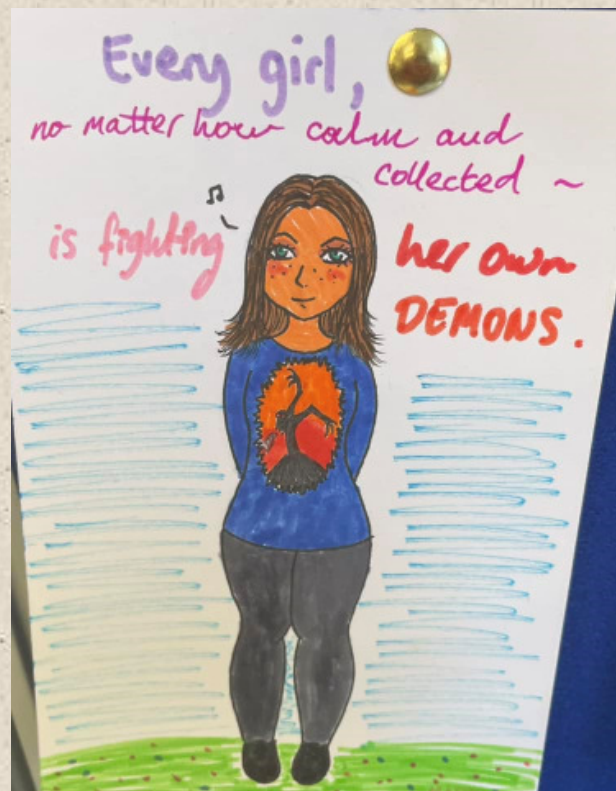 Every girl,
no matter how calm and
collected ~
is fighting
her own
DEMONS.